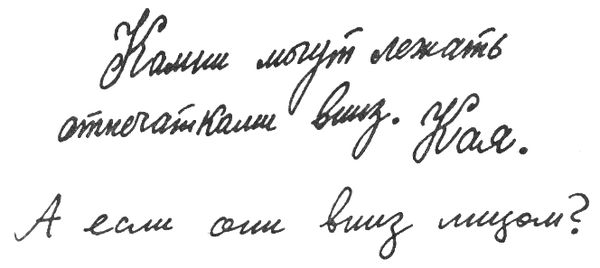 Камни могут лежать
отпечатками вниз. Кая.
А если они вниз лицом?